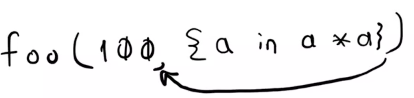 foo(100, {a in a *a})